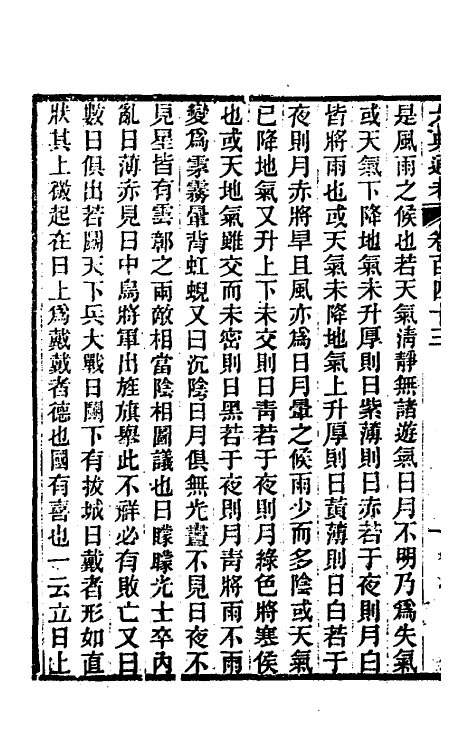 六典通考 卷百四十三
是風雨之候也若天氣淸靜無諸遊氣日月不明乃爲失氣
或天氣下降地氣未升厚則日紫薄則日赤若于夜則月白
皆將雨也或天氣未降地氣上升厚則日黃薄則日白若于
夜則月赤將旱且風亦爲日月暈之候雨少而多陰或天氣
已降地氣又升上下未交則日靑若于夜則月綠色將寒候
也或天地氣雖交而未密則日黑若于夜則月靑將雨不雨
變爲雺霧暈背虹蜺又曰沉陰日月俱無光晝不見日夜不
見星皆有雲鄣之兩敵相當陰相圖議也日曚曚光士卒內
亂日薄赤見日中烏將軍出旌旗舉此不祥必有敗亡又曰
數日俱出若鬭天下兵大戰日鬭下有拔城日戴者形如直
狀其上微起在日上爲戴戴者德也國有喜也一云立日上